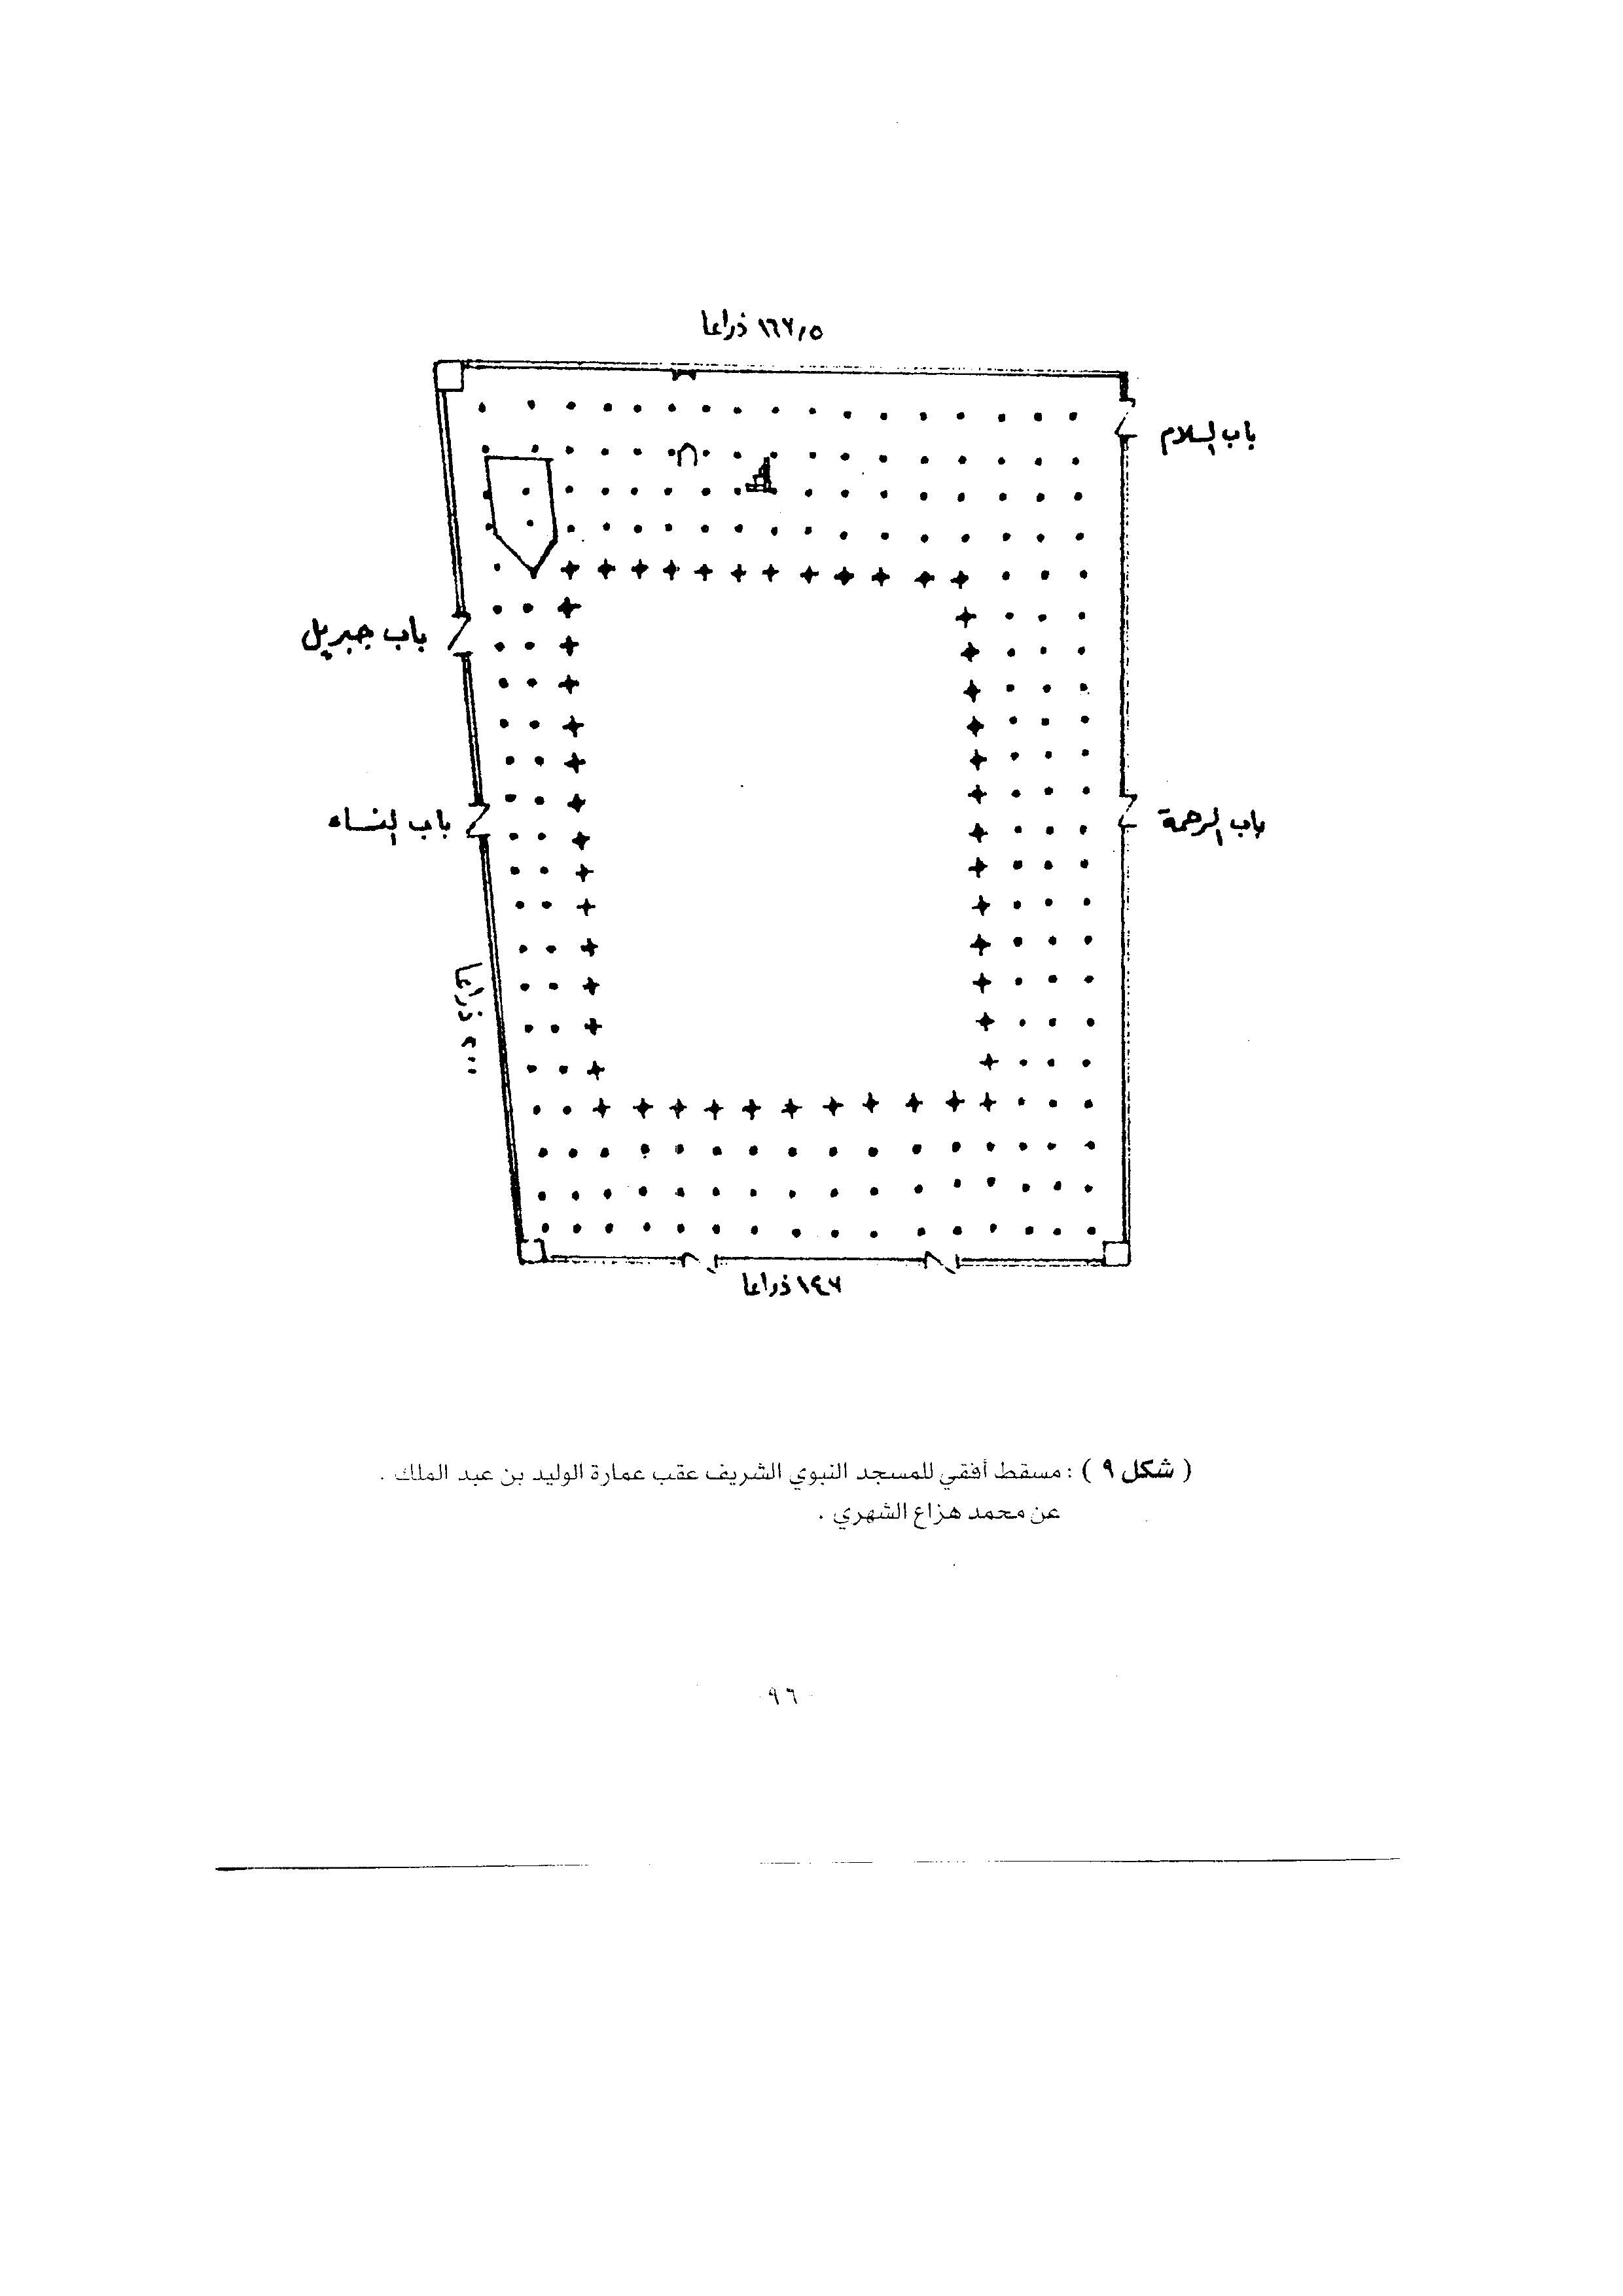 ١٦٧٫٥ ذراعا
باب السلام
باب جبريل
باب النساء
باب الرحمة
٢٠٠ ذراعا
١٤٧ ذراعا
( شكل ٩ ) : مسقط أفقي للمسجد النبوي الشريف عقب عمارة الوليد بن عبد الملك .
عن محمد هزاع الشهري .
٩٦